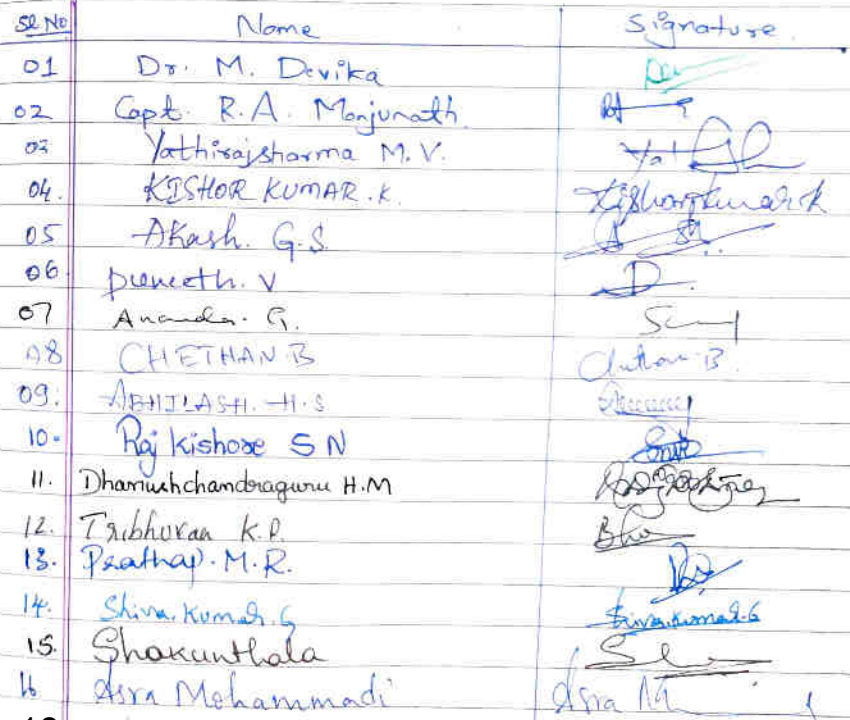 Sl No Name Signature
01 Dr. M. Devika
02 Capt. R.A. Manjunath
03 Yathirajsharma M.V. Yat
04. KISHOR KUMAR.K. Kishorkumar.k
05 Akash. G.S
06. Puneeth. V
07 Ananda. G.
08 CHETHAN B Chethan B.
09. ABHILASH. H.S
10. Raj Kishore S N
11. Dhanushchandraguru H.M
12. Tribhuvan K.P. Bhu
13. Prathap. M.R.
14. Shiva.Kumar.G Shivakumar.G
15. Shakunthala
16 Asra Mohammadi Asra M